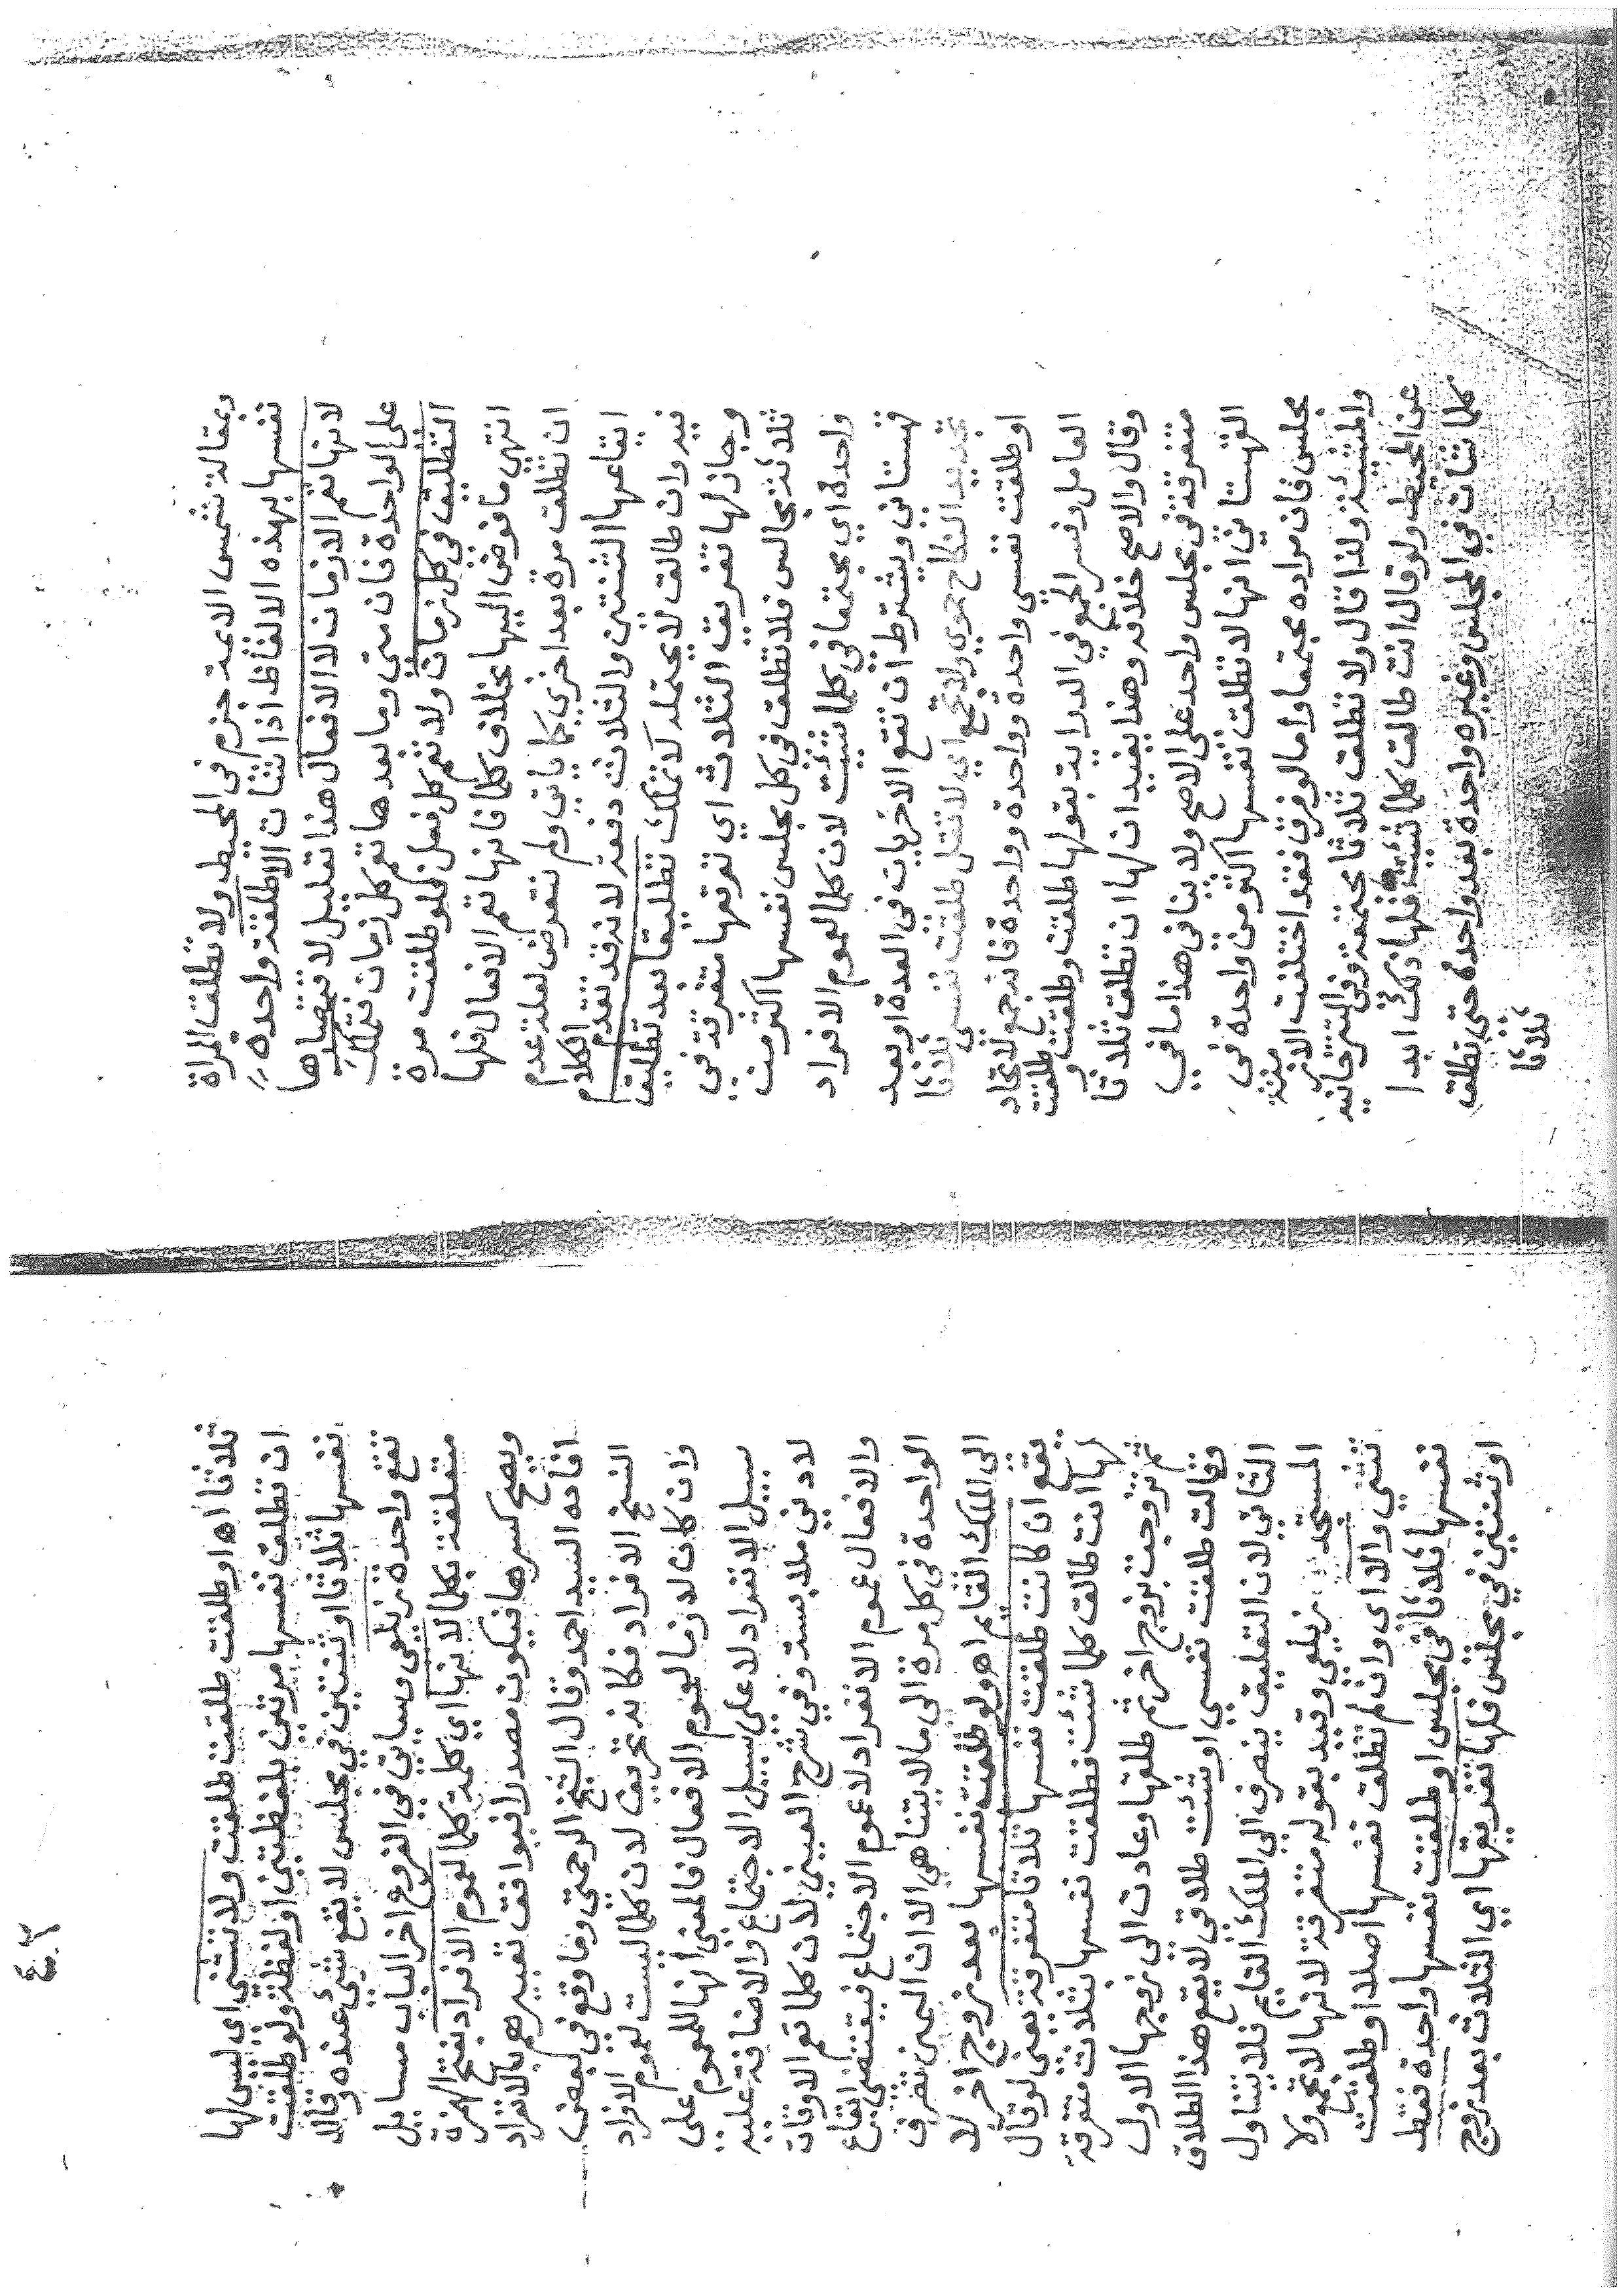 وبمقالة شمس الايمة جزم في المحيط ولا تطلقت المراة
نفسها بهذه الالفاظ اذا شاات الا طلقة واحدة
لانها تعم الازمان لا الافعال هذا تعليل لاقتصارها
على الواحدة فان متي وما بعدها تعم كل زمان فتملك
التطليق في كل زمان ولا تعم كل فعل فلو طلقت مرة
انتهي ما فوض اليها بخلاف كلما فانها تعم الافعال فلها
ان تطلق مرة بعد اخري كما ياتي ولم نتعرض لعلة عدم
ايقاعها الثنتين والثلاث دفعة لانه قد تقدم الكلام
فيه وان طالق لا يحتمله كلا تملك تطليقا بعد تطليق
وجاز لها تفريق الثلاث اي توقعها متفرقة في
ثلاثة مجالس فلا تطلق في كل مجلس نفسها اكثر من
واحدة اي مجتمعا في كلما شئت لان كلما لعموم الافراد
قهستاني ويشترط ان تقع الاخريات في العدة او بعد
تجديد النكاح حموي ولا تجمع اي لا تقل طلقت نفسي ثلاثا
او طلقت نفسي واحدة وواحدة وواحدة فانه جمع لاتحاد
العامل وفسر الجمع في الدراية بقولها طلقت وطلقت وطلقت
وقال والاصح خلافه وهذا يفيد ان لها ان تطلق ثلاثا
متفرقة في مجلس واحد على الاصح ولا ينافي هذا ما في
القهستاني انها لا تطلق نفسها اكثر من واحدة في
مجلس فان مراده مجتمعا واما لو فرق فقد اختلفت
ولذا قال ولا تطلق ثلاثا مجتمعة وفي
عن المحيط ولو قال انت طالق كلما شئت فلها ذلك ابدا
كلما شاات في المجلس وغيره واحدة بعد واحدة حتى تطلق
ثلاثا
ثلاثا اه او طلقت طلقت طلقت ولا تثني اي ليس لها
ان تطلق نفسها مرتين بلفظتين او لفظة ولو طلقت
نفسها ثلاثا او ثنتين في مجلس لا يقع شي عنده وقالا
تقع واحدة زيلعي وسياتي في الفروع اخر الباب مسايل
متعلقة بكلما لانها اي كلمة كلما لعموم الافراد بفتح الهمزة
ويصح كسرها فيكون مصدرا فيوافق تعبيرهم بالانفراد
افاده السيد احمد وقال الشيخ الرحمتي وما وقع في بعض
النسخ الافراد فكانه تحريف لان كلما ليست لعموم الافراد
وان كان لازما لعموم الافعال فالمعني انها للعموم على
سبيل الانفراد لا على سبيل الاجتماع والاضافة عليه
لادني ملابسة وفي شرح العيني لان كلما تعم الاوقات
والافعال عموم الانفراد لا عموم الاجتماع فيقتضي ايقاع
الواحدة في كل مرة الى ما لا يتناهي الا ان اليمين تصرف
الى الملك القائم اه ولو طلقت نفسها بعد زوج اخر لا
يقع ان كانت طلقت نفسها ثلاثا متفرقة يعني لو قال
لها انت طالق كلما شئت فطلقت نفسها بثلاث متفرقة
ثم تزوجت بزوج اخر ثم طلقها وعادت الى زوجها الاول
وقالت طلقت نفسي او شئت طلاقي لا يقع هذا الطلاق
الثاني لان التعليق ينصرف الى الملك القايم فلا يتناول
المستجد زيلعي وقيد بقوله متفرقة لانها لا تجمع ولا
تثني والا اي وان لم تطلق نفسها اصلا او طلقت
نفسها ثلاثا في مجلس او طلقت نفسها واحدة فقط
او ثنتين في مجلس فلها تفريقها اي الثلاث بعد زوج